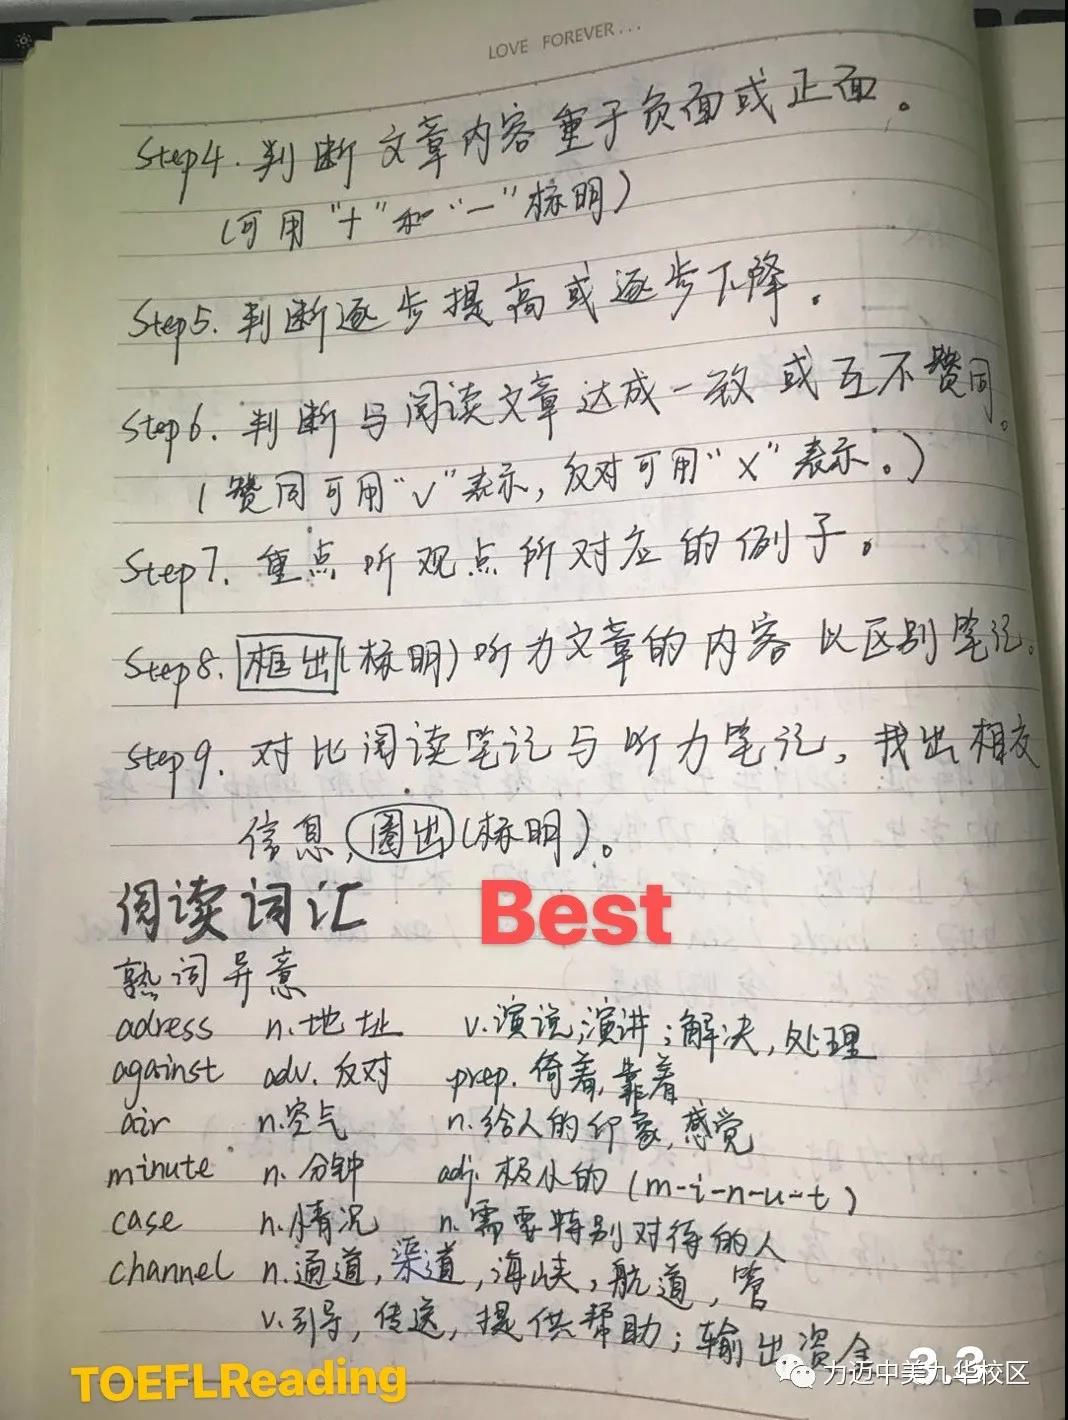 LOVE FOREVER...
Step4. 判断文章内容重于负面或正面。
(可用"+"和"一"标明)
Step5. 判断逐步提高或逐步下降.
Step6. 判断与阅读文章达成一致或互不赞同。
(赞同可用"√"表示,反对可用"X"表示。)
Step7. 重点听观点所对应的例子。
Step8. 框出(标明)听力文章的内容以区别笔记。
Step9. 对比阅读笔记与听力笔记,找出相反
信息,圈出(标明)。
阅读词汇 Best
熟词异意
adress n.地址 v.演说,演讲;解决,处理
against adv.反对 prep.倚着,靠着
air n.空气 n.给人的印象,感觉
minute n.分钟 adj.极小的(m-i-n-u-t)
case n.情况 n.需要特别对待的人
channel n.通道,渠道,海峡,航道,管
v.引导,传送,提供帮助;输出资金
TOEFLReading
3.3
力迈中美九华校区